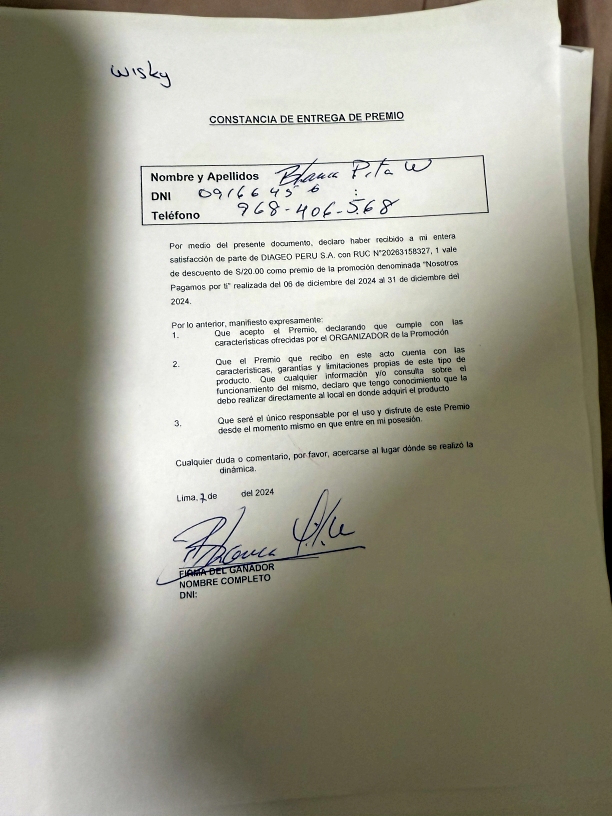 wisky
CONSTANCIA DE ENTREGA DE PREMIO
Nombre y Apellidos Blanca Pita W
DNI 09166456
Teléfono 968-406-568
Por medio del presente documento, declaro haber recibido a mi entera
satisfacción de parte de DIAGEO PERU S.A. con RUC N°20263158327, 1 vale
de descuento de S/20.00 como premio de la promoción denominada "Nosotros
Pagamos por ti" realizada del 06 de diciembre del 2024 al 31 de diciembre del
2024.
Por lo anterior, manifiesto expresamente:
1. Que acepto el Premio, declarando que cumple con las
características ofrecidas por el ORGANIZADOR de la Promoción
2. Que el Premio que recibo en este acto cuenta con las
características, garantías y limitaciones propias de este tipo de
producto. Que cualquier información y/o consulta sobre el
funcionamiento del mismo, declaro que tengo conocimiento que la
debo realizar directamente al local en donde adquirí el producto
3. Que seré el único responsable por el uso y disfrute de este Premio
desde el momento mismo en que entre en mi posesión.
Cualquier duda o comentario, por favor, acercarse al lugar dónde se realizó la
dinámica.
Lima, de del 2024
Blanca Pita
FIRMA DEL GANADOR
NOMBRE COMPLETO
DNI: